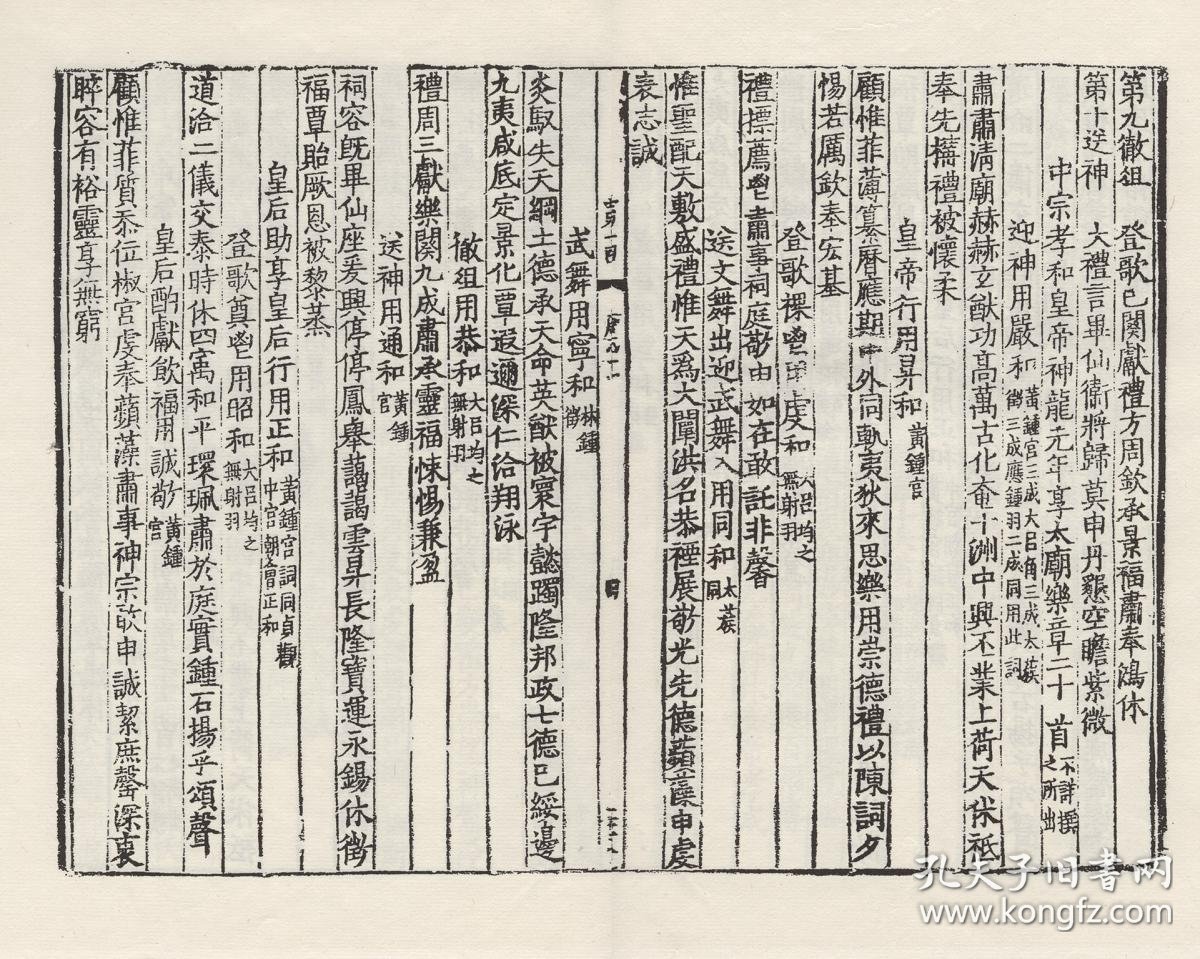 第九徹俎 登歌已闋獻禮方周欽承景福肅奉鴻休
第十送神 大禮言畢仙衛將歸莫申丹懇空瞻紫微
中宗孝和皇帝神龍元年享太廟樂章二十首 不詳撰之所出
迎神用嚴和 黃鍾宮三成大呂角三成太蔟徵三成應鍾羽二成同用此詞
肅肅清廟赫赫玄猷功高萬古化奄十洲中興丕業上荷天休祇
奉先搆禮被懷柔
皇帝行用昇和 黃鍾宮
顧惟菲薄纂曆應期中外同軌夷狄來思樂用崇德禮以陳詞夕
惕若厲欽奉宏基
登歌祼鬯用虔和 大呂均之無射羽
禮摽薦鬯肅事祠庭敬申如在敢託非馨
送文舞出迎武舞入用同和 太蔟
惟聖配天敷盛禮惟天爲大闡洪名恭禋展敬光先德蘋藻申虔
表志誠
武舞用寧和 林鍾徵
炎馭失天綱土德承天命英猷被寰宇懿躅隆邦政七德已綏邊
九夷咸底定景化覃遐邇深仁洽翔泳
徹俎用恭和 大呂均之無射羽
禮周三獻樂闋九成肅承靈福悚惕兼盈
送神用通和 黃鍾宮
祠容旣畢仙座爰興停停鳳舉藹藹雲昇長隆寶運永錫休徵
福覃貽厥恩被黎蒸
皇后助享皇后行用正和 黃鍾宮詞同貞觀中宮朝會正和
登歌奠鬯用昭和 大呂均之無射羽
道洽二儀交泰時休四寓和平環珮肅於庭實鍾石揚乎頌聲
皇后酌獻飲福用誠敬 黃鍾宮
顧惟菲質忝位椒宮虔奉蘋藻肅事神宗敢申誠絜庶罄深衷
睟容有裕靈享無窮
孔夫子旧书网
www.kongfz.com